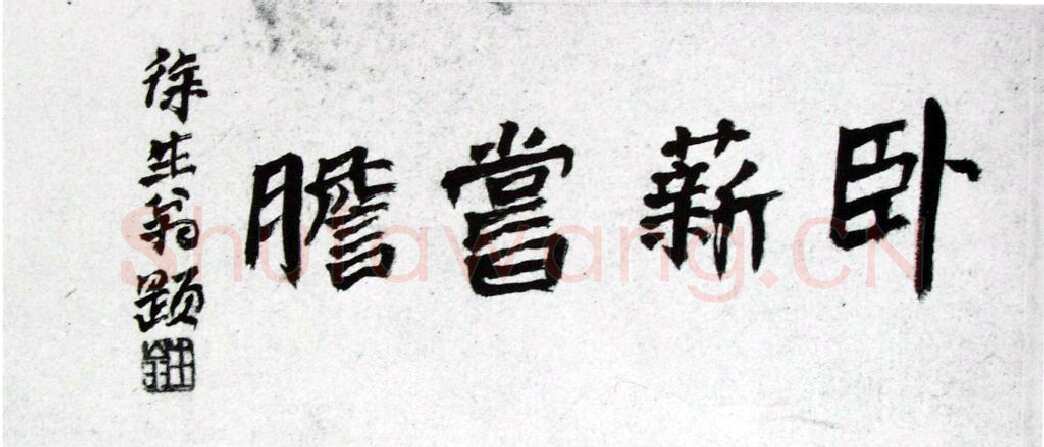 卧薪嘗膽
徐生翁題
Shufawang.CN